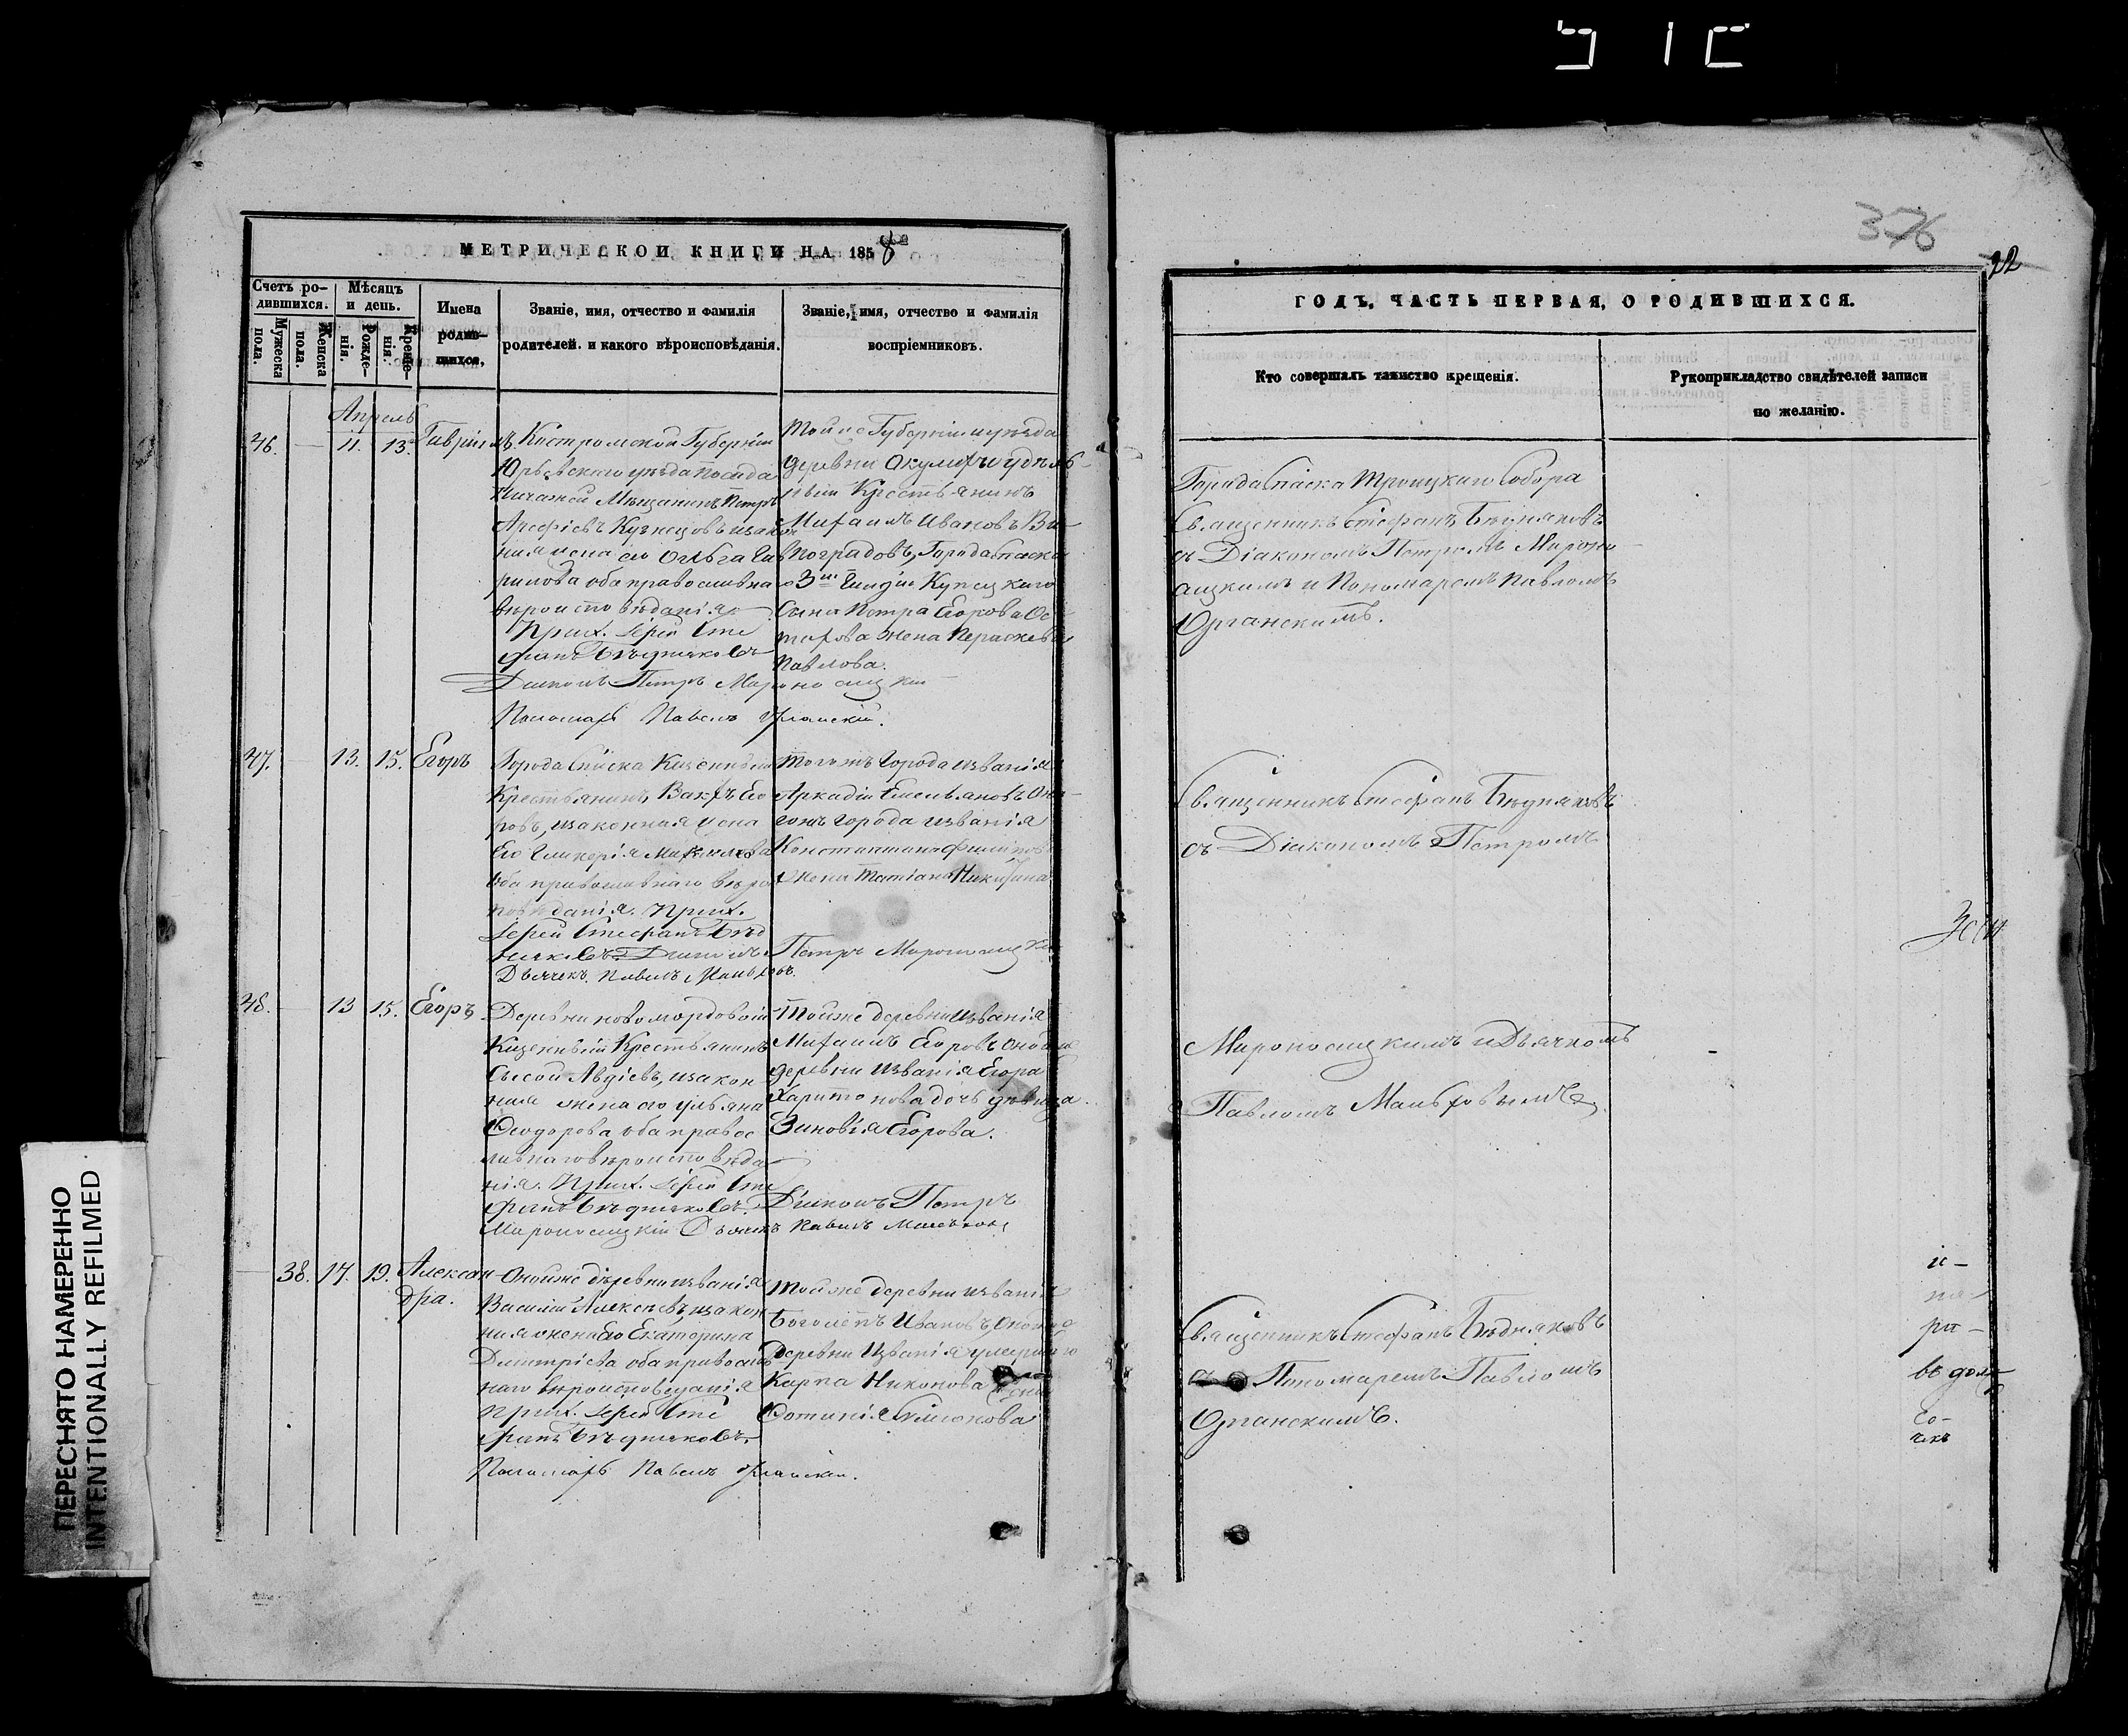 376
22
МЕТРИЧЕСКОЙ КНИГИ НА 1858
ГОДЪ, ЧАСТЬ ПЕРВАЯ, О РОДИВШИХСЯ.
Счетъ ро-
дившихся.
Мужеска
пола.
Женска
пола.
Мѣсяцъ
и день.
Рожде-
нія.
Креще-
нія.
Имена
родив-
шихся.
Званіе, имя, отчество и фамилія
родителей. и какого вѣроисповѣданія.
Званіе, имя, отчество и фамилія
воспріемниковъ.
Кто совершалъ таинство крещенія.
Рукоприкладство свидѣтелей записи
по желанію.
Апрель
46. — 11. 13. Гавріилъ.
Костромской Губерніи
Юрьевскаго уѣзда посада
Мѣщанинъ Петръ
Арефіевъ Кузнецовъ и закон
ная жена его Ольга Гав
рилова оба православна
вѣроисповѣданія
Прих. Іерей Сте
фанъ Бѣдняковъ
Діаконъ Петръ Мироносицкій
Пономарь Павелъ Органскій.
Тойже Губерніи и уѣзда
деревни удѣль-
ный Крестьянинъ
Михаилъ Ивановъ Ви-
ноградовъ, Города Спаска
3й Гильдіи Купецкаго
Сына Петра Егорова Ос
тахова жена Параскева
Павлова.
Города Спаска Троицкаго Собора
Священникъ Стефанъ Бѣдняковъ
съ Діакономъ Петромъ Мироно-
сицкимъ и Пономаремъ Павломъ
Органскимъ.
47. 13. 15. Егоръ
Города Спаска Казенный
Крестьянинъ, Вакхъ Его
ровъ, и законная жена
Его Гликерія Михайлова
оба православнаго вѣро
повѣданія. Прих.
Іерей Стефанъ Бѣд
няковъ. Діаконъ Петръ Мироносицкій
Дьячекъ Павелъ
Тогожъ города и званія
Аркадій Емельяновъ Она-
гожъ города и званія
Константина Филипова
жена Татіана Никитина
Священникъ Стефанъ Бѣдняковъ
съ Діакономъ Петромъ
48. — 13 15. Егоръ
Деревни новомордовой
Казенный Крестьянинъ
Сысой Авдіевъ, и закон
ная жена его Ульяна
Ѳеодорова оба правос
лавнаго вѣроисповѣда
нія. Прих. Іерей Сте
фанъ Бѣдняковъ. Діаконъ Петръ
Мироносицкій Дьячекъ Павелъ
Тойже деревни и званія
Михаилъ Егоровъ онойже
деревни и званія Егора
Харитонова дочь дѣвица.
Зиновія Егорова.
Мироносицкимъ и Дьячкомъ
Павломъ
— 38. 17. 19. Алексан-
дра.
Онойже деревни и званія
Василій Алексѣевъ, и закон
ная жена Его Екатерина
Димитріева оба православ
наго вѣроисповеданія
Прих. Іерей Сте
фанъ Бѣдняковъ.
Пономарь Павелъ Органскій.
Тойже деревни и званія
Боголепъ Ивановъ, Онойже
деревни и званія умершаго
Карпа Никонова жена
Фотинія Симонова
Священникъ Стефанъ Бѣдняковъ
съ Пономаремъ Павломъ
Органскимъ.
ПЕРЕСНЯТО НАМЕРЕННО
INTENTIONALLY REFILMED